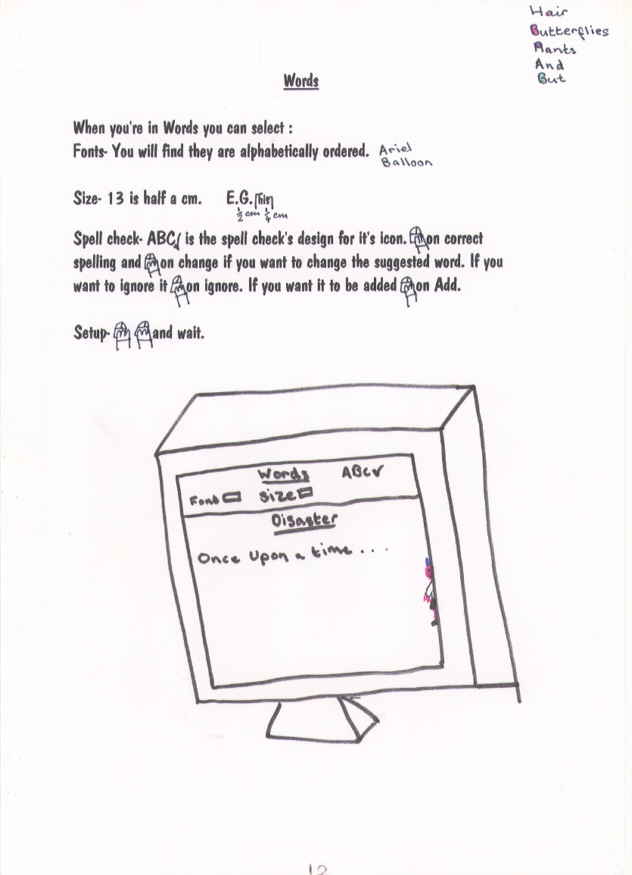 Hair
Butterflies
Pants
And
But
Words
When you're in Words you can select :
Fonts- You will find they are alphabetically ordered. Ariel
Balloon
Size- 13 is half a cm. E.G. Thin
1/2 cm 1/4 cm
Spell check- ABC√ is the spell check's design for it's icon. on correct
spelling and on change if you want to change the suggested word. If you
want to ignore it on ignore. If you want it to be added on Add.
Setup- and wait.
Words ABC✓
Font Size
Disaster
Once Upon a time . . .
12